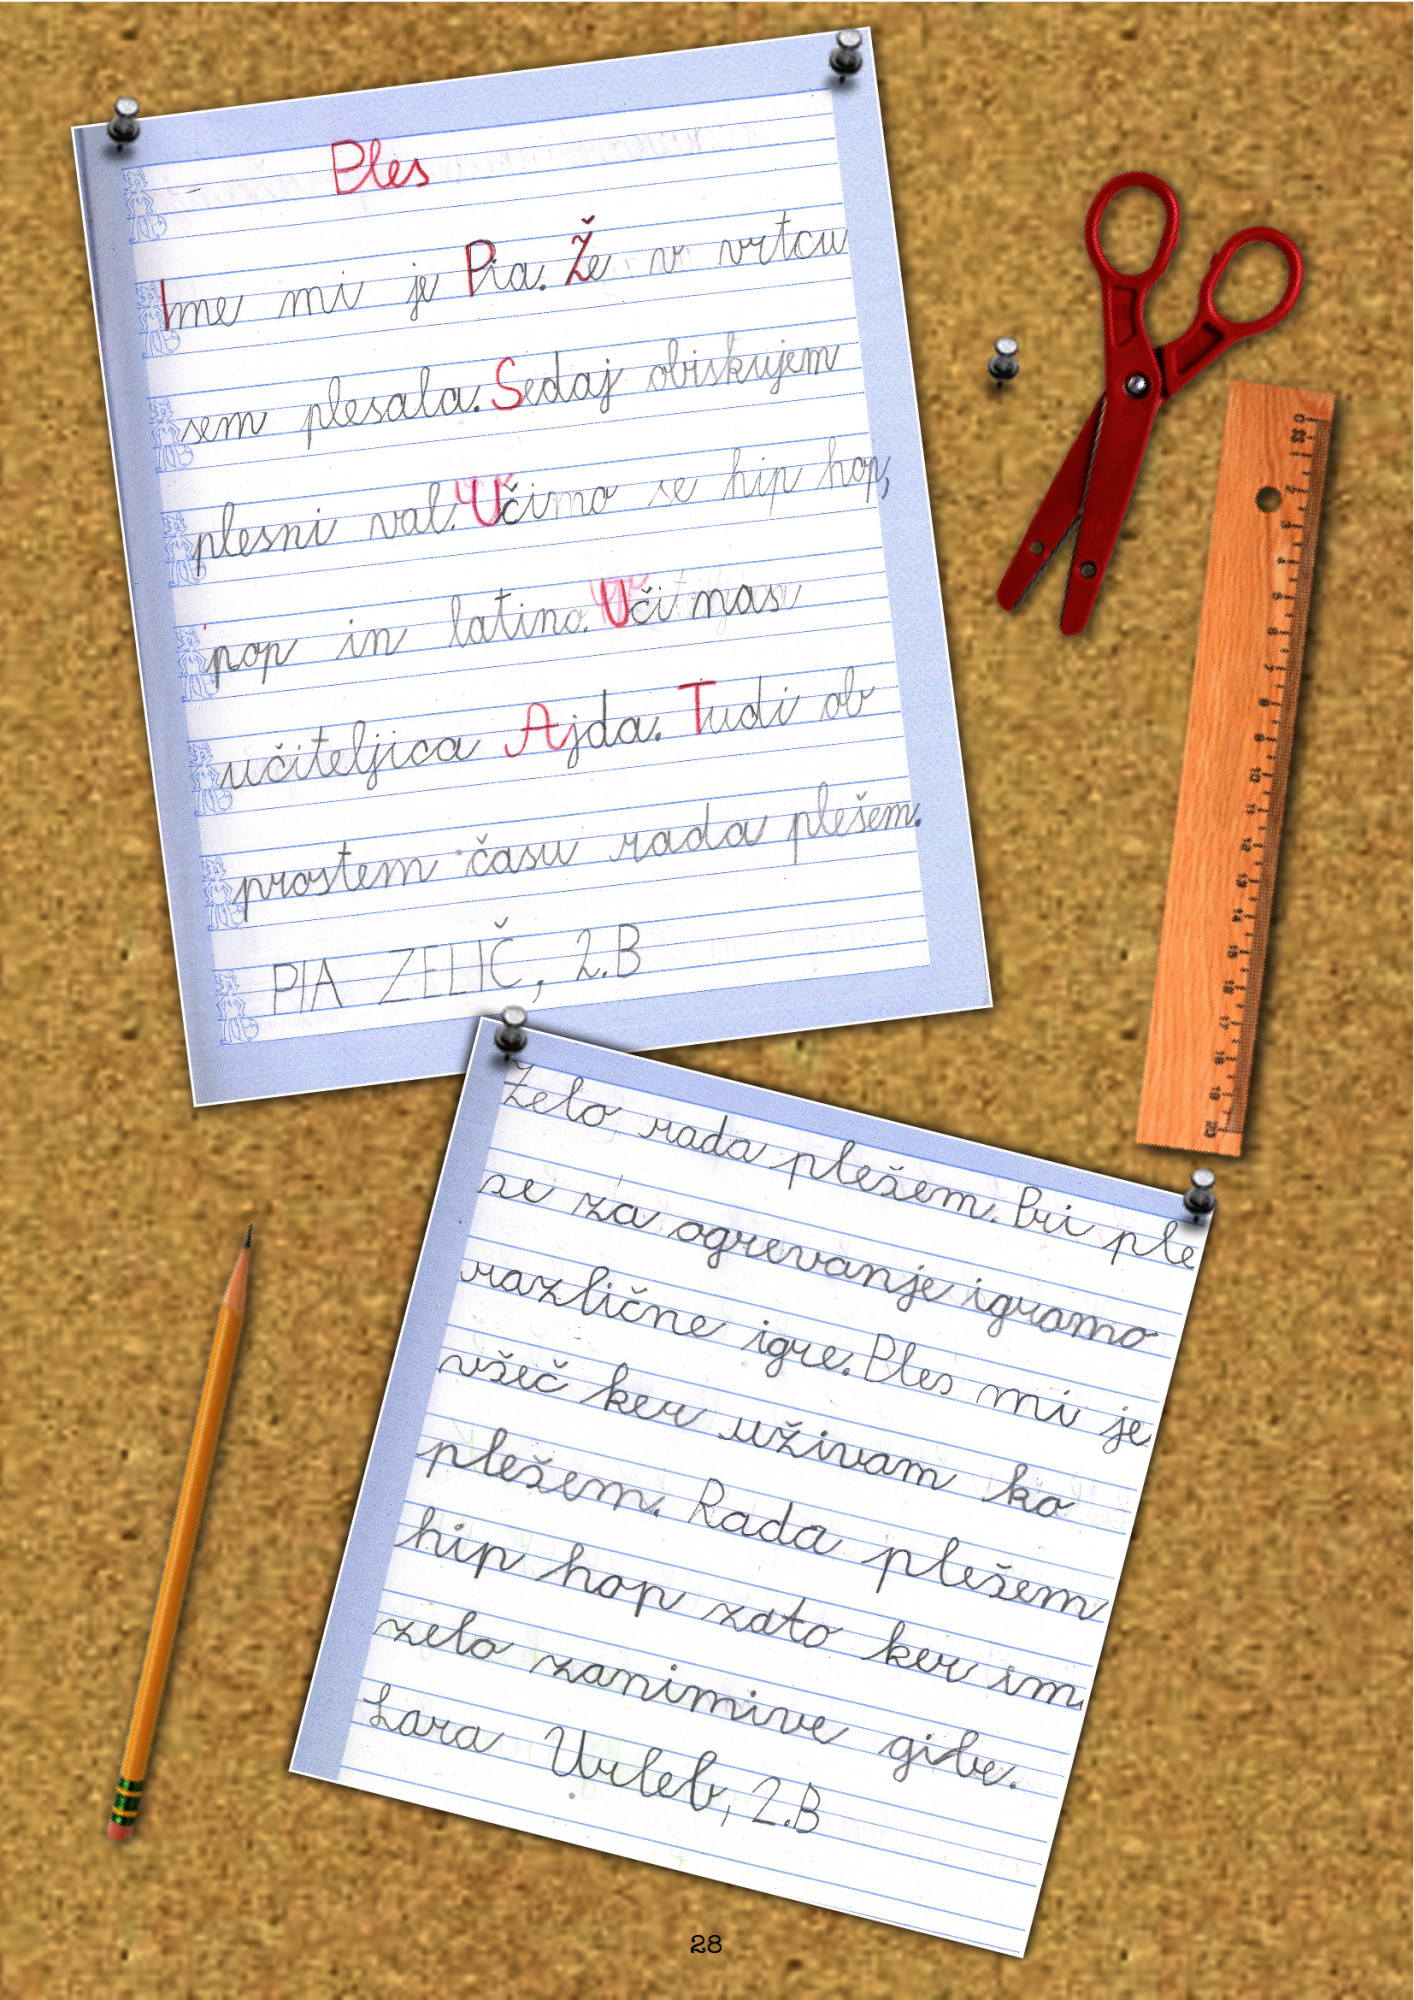 Ples
Ime mi je Pia. Že v vrtcu
sem plesala. Sedaj obiskujem
plesni val. Učimo se hip hop,
pop in latino. Uči nas
učiteljica Ajda. Tudi ob
prostem času rada plešem.
PIA ZELIČ, 2.B
Zelo rada plešem. Pri ple
se za ogrevanje igramo
različne igre. Ples mi je
všeč ker uživam ko
plešem. Rada plešem
hip hop zato ker im
zelo zanimive gibe.
Lara Urleb, 2.B
28